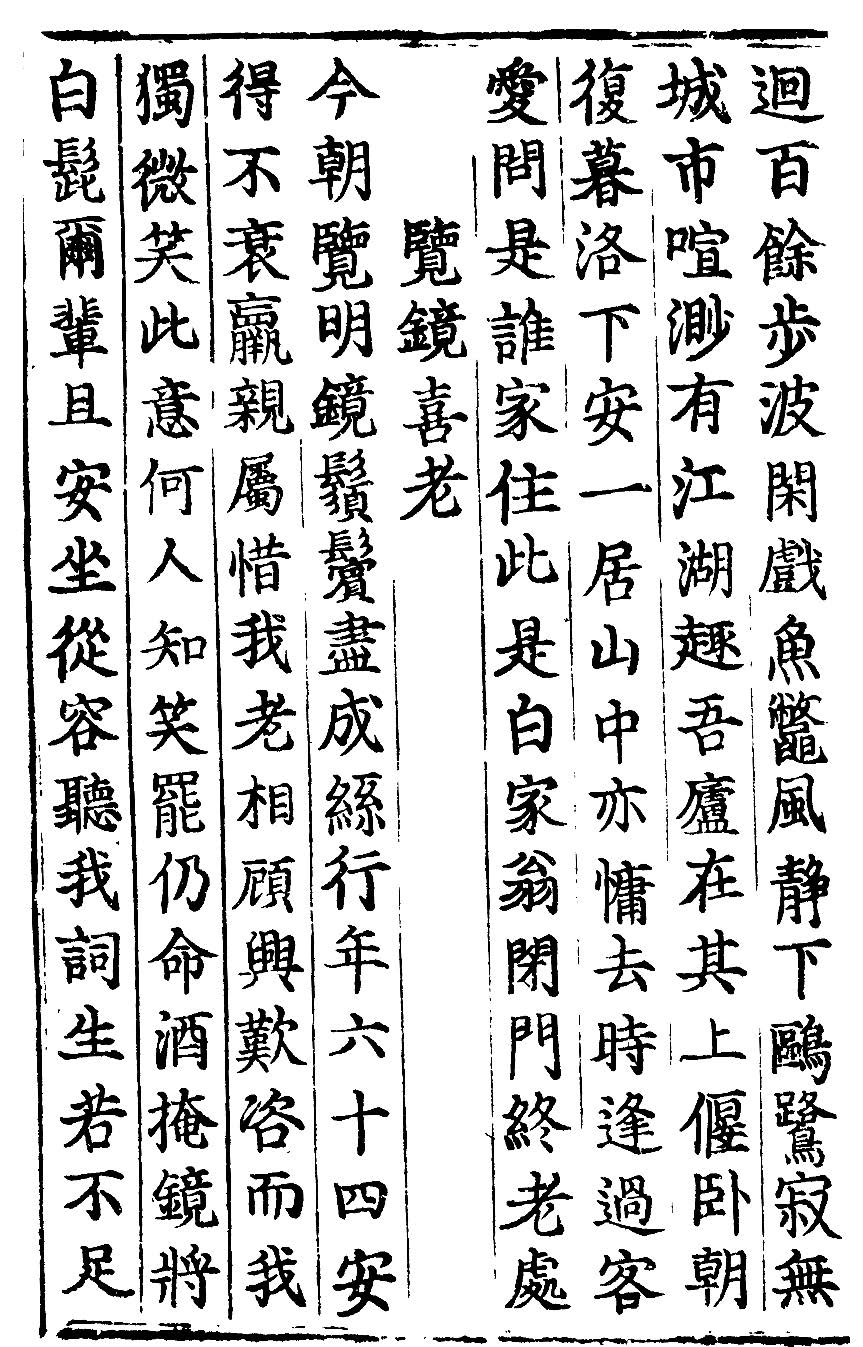 迴百餘步波閑戲魚鼈風静下鷗鷺寂無
城市喧渺有江湖趣吾廬在其上偃卧朝
復暮洛下安一居山中亦慵去時逢過客
愛問是誰家住此是白家翁閉門終老處
覽鏡喜老
今朝覽明鏡鬚鬢盡成絲行年六十四安
得不衰羸親屬惜我老相顧興歎咨而我
獨微笑此意何人知笑罷仍命酒掩鏡捋
白髭爾輩且安坐從容聽我詞生若不足